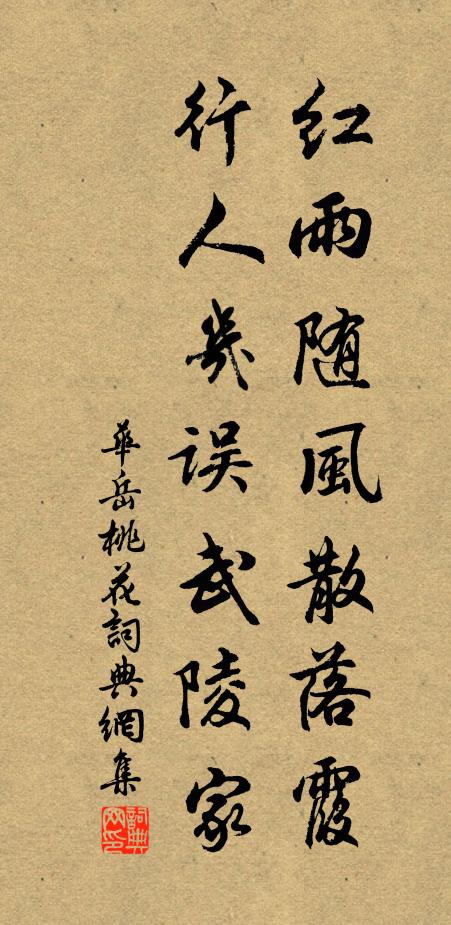 紅雨随風散落霞
行人幾误武陵家
華岳桃花詞典網集
詞典网印